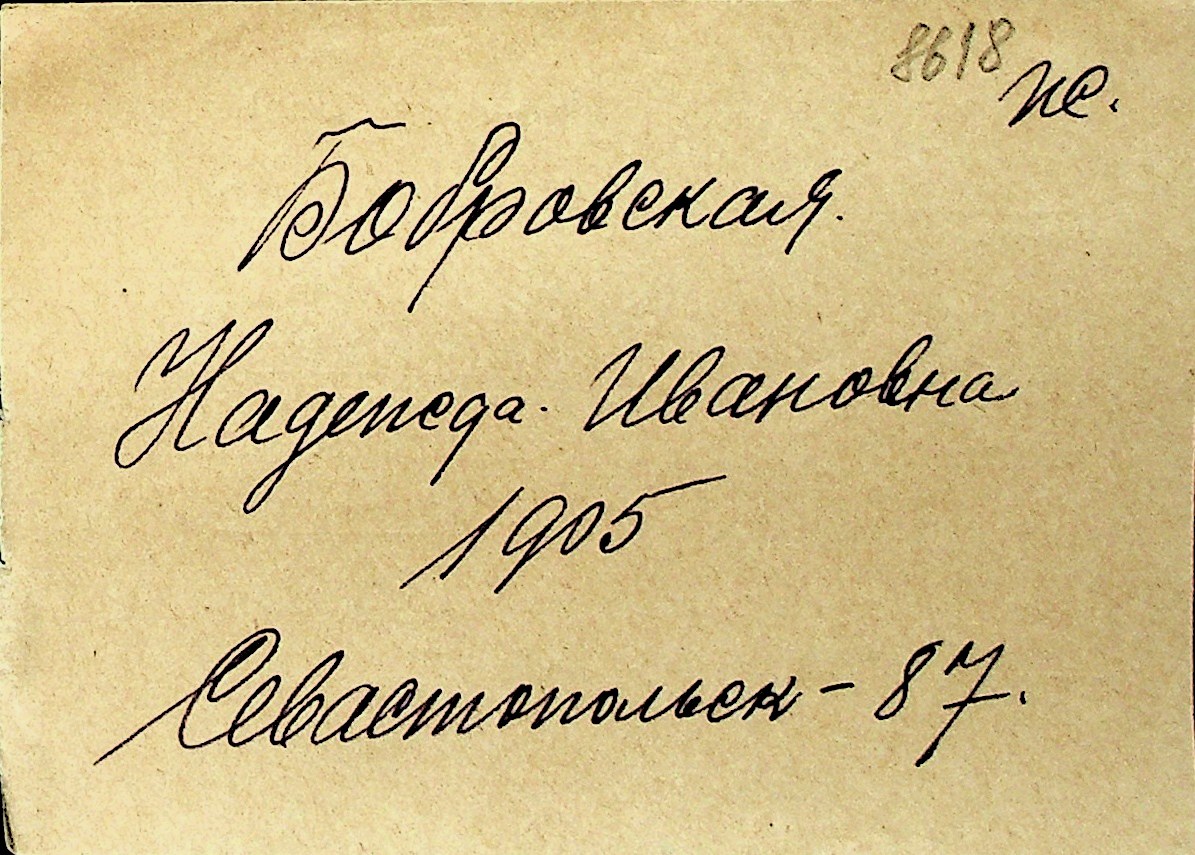 8618 ж.
Бобровская.
Надежда Ивановна
1905
Севастопольск - 87.